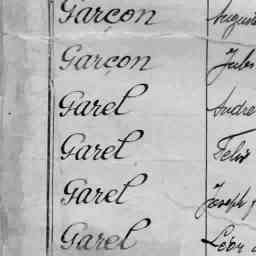 Garçon Auguste
Garçon Jules
Garel André
Garel Felix
Garel Joseph
Garel Léon